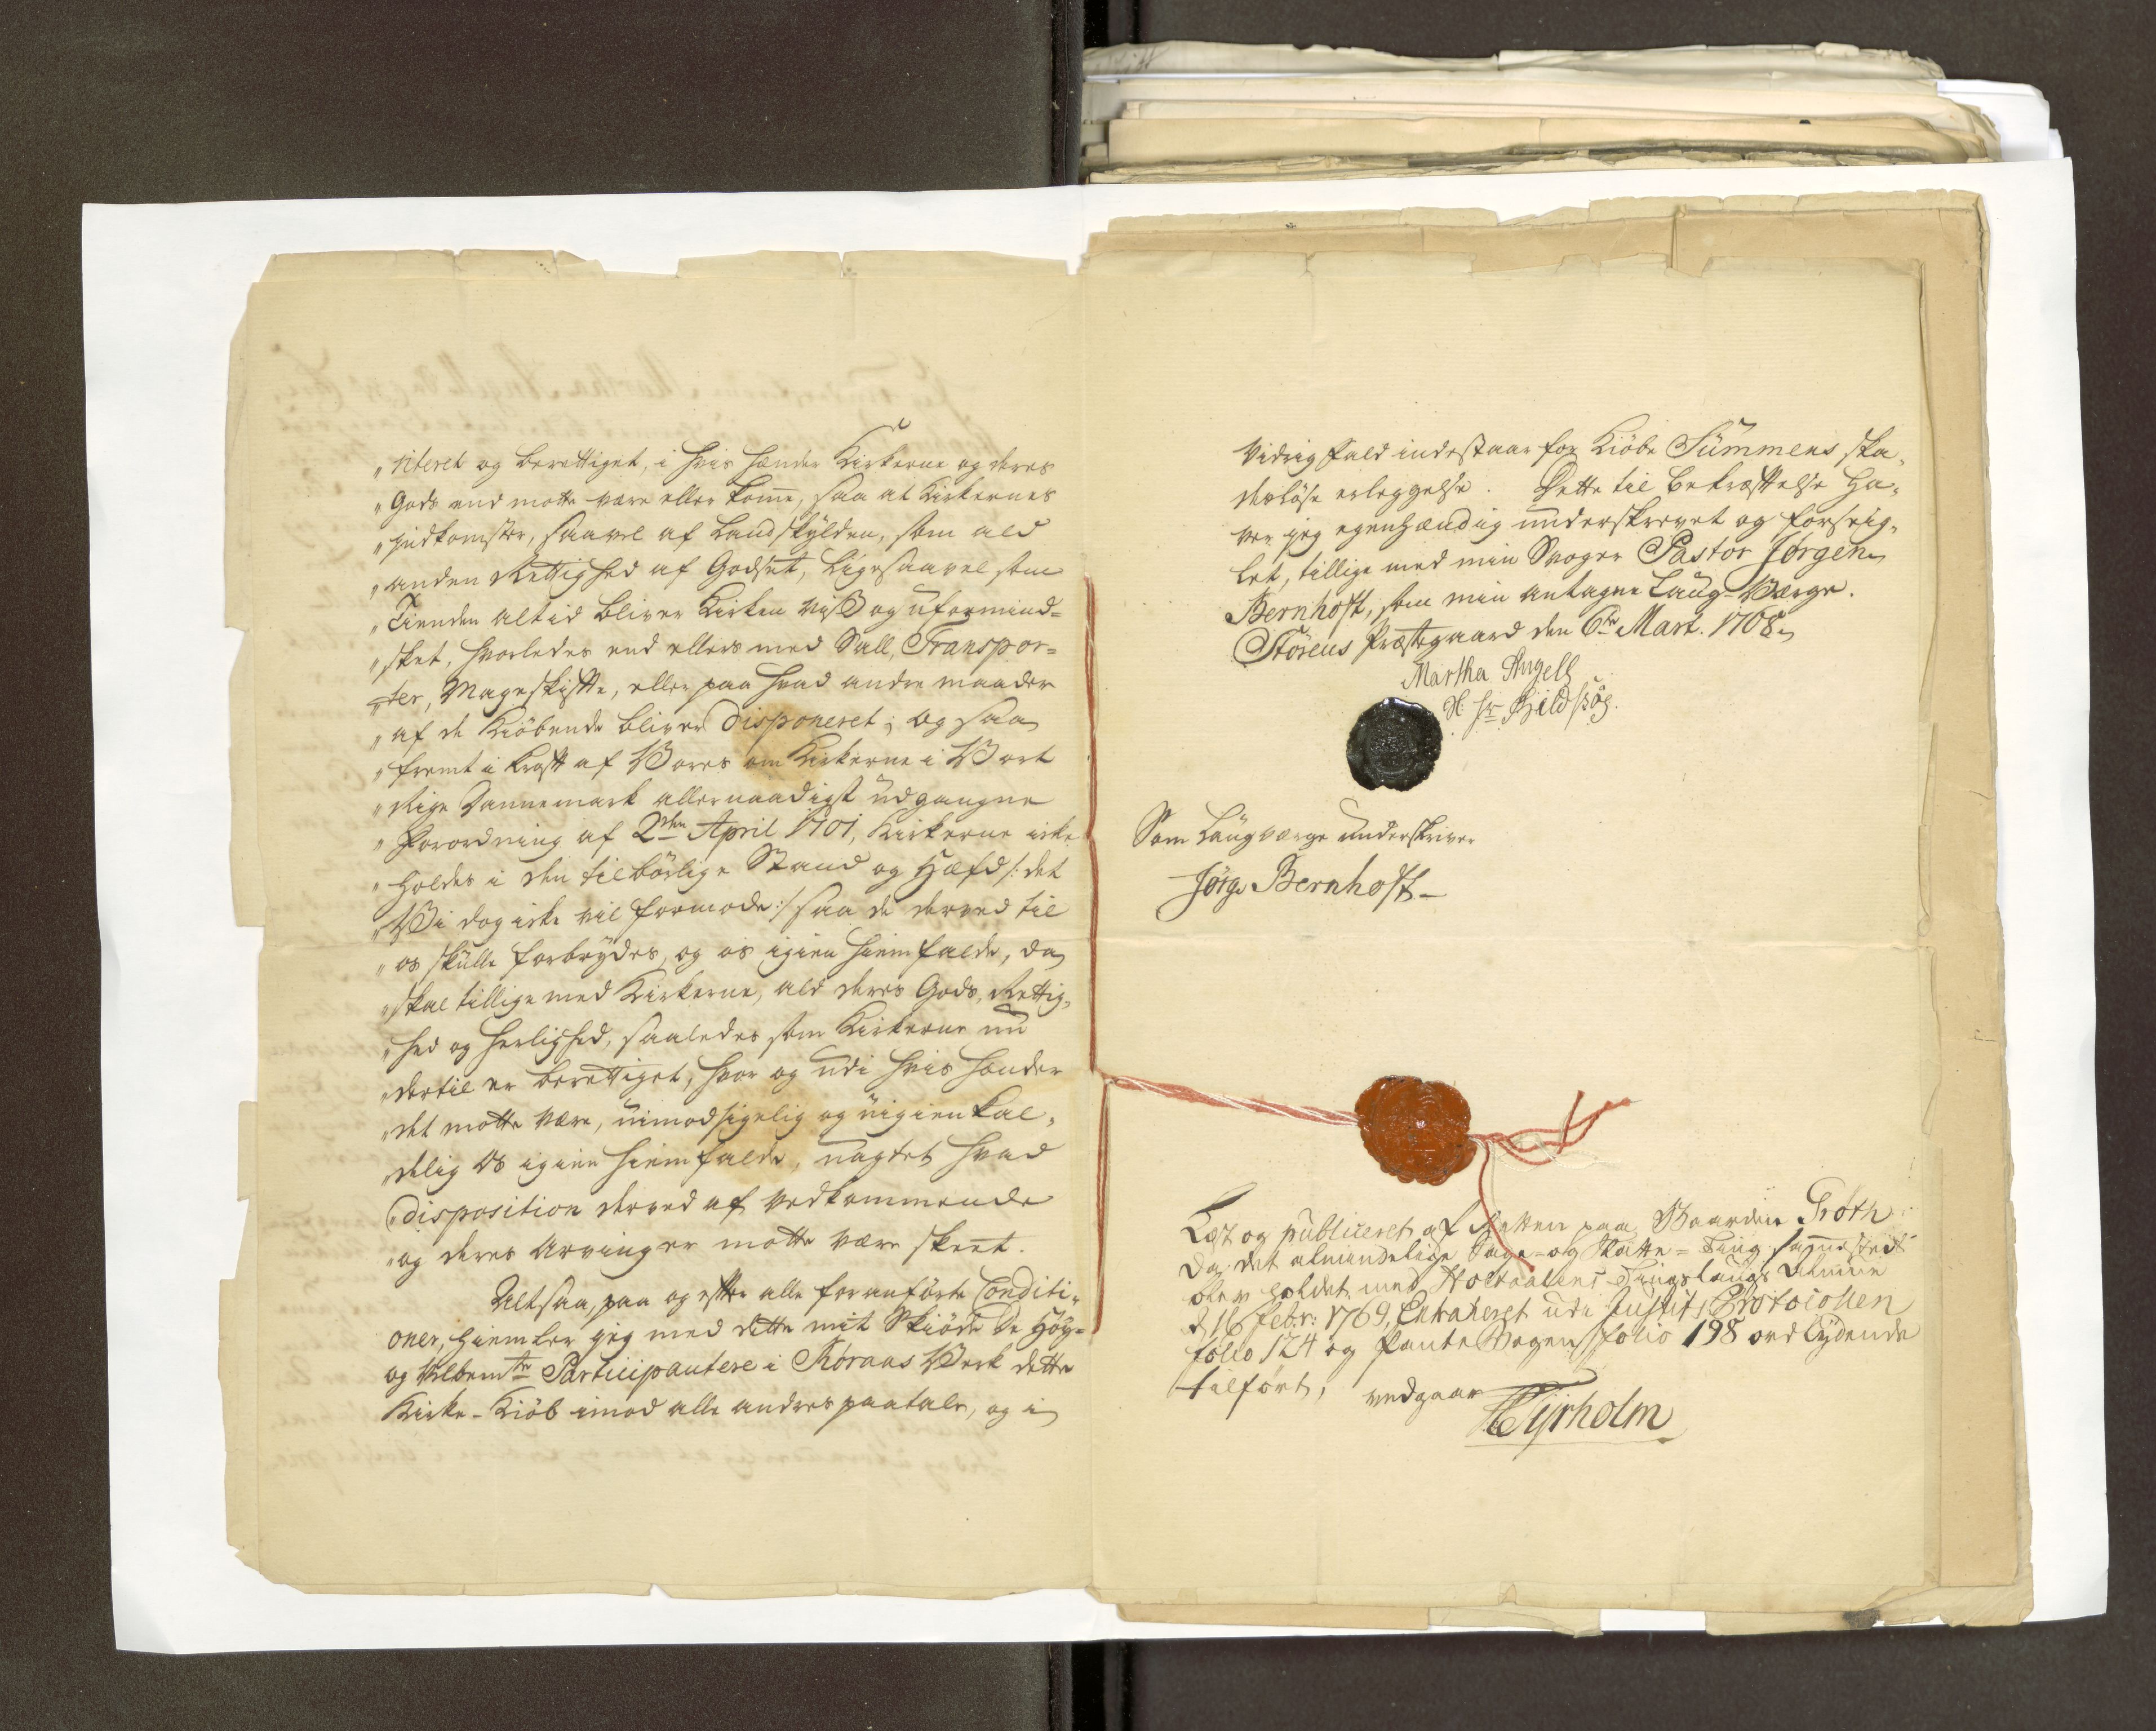 „ viteret og berettiget, i hvis hænder Kirkerne og deres
„ Gods end motte være eller komme, saa at Kirkernes
„ Indkomster, saavel af Landskÿlden, som ald
„ anden Rettighed af Godset, ligesaavel som
„ Tienden altid bliver Kirken viß og uformind=
„ sket, hvorledes end ellers med Sall, Transpor=
„ ter, Mageskifte, eller paa hvad andre maader
„ af de Kiöbende bliver disponeret; og saa
„ fremt i kraft af Vores om Kirkerne i Vort
„ Rige Dannemark allernaadigst udgangne
„ Forordning af 2den April 1701, Kirkerne icke
„ holdes i den tilbörlige Stand og Hæfd /: det
„ Vi dog icke vil formode :/ saa de derved til
„ os skulle forbrÿdes, og os igien hiemfalde, da
„ skal tillige med Kirkerne, ald deres Gods, Rettig„
„ hed og herlighed, saaledes som Kirkerne nu
„ dertil er berettiget, hvor og udi hvis hænder
„ det motte være, uimodsigelig og uigienkal„
„ delig Os igien hiemfalde, uagtet hvad
„ disposition derved af vedkommende
„ og deres Arvinger motte være skeet.
Altsaa, paa og efter alle foranförte Conditi„
oner, hiemler jeg med dette mit Skiöde De Höÿ=
og Velbemte Participantere i Röraas Verk dette
Kirke-Kiöb imod alle andres paatale, og i
vidrig fald indestaar for Kiöbe Summens ska„
deslöse erleggelse. Dette til bekræftelse ha„
ver jeg egenhændig underskrevet og forseig„
let, tillige med min Svoger Pastor Jörgen
Bernhoft, som min antagne Laug-Værge.
Störens Præstegaard den 6te Mart. 1768.
Martha Angell
Sl. Hr Hildß
Som Laugværge underskriver
Jörg. Bernhoft
Læst og publiceret af Retten paa Gaarden Groth
da det almindelige Sage- og Skatte-Ting sammested
blev holdet med Holtaalens Tinglaugs Almue
d 16 Febr: 1769, Extraheret udi Justits Protocollen
folio 124 og Pante Bogen folio 198 ord lÿdende
tilfört, vedgaar
Hÿrholm